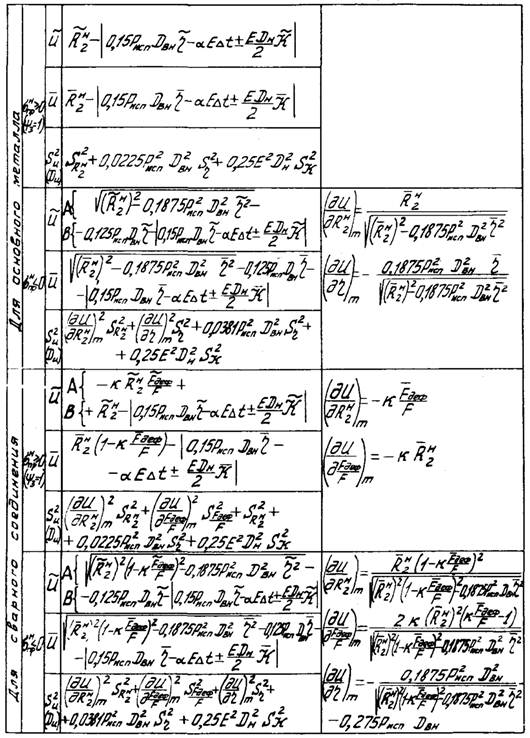 Для основного металла
σ_пр^н ≥ 0
(ψ_3=1)
Ũ
R̃_2^н − |0,15P_исп D_вн η̃ − αEΔt ± (E D_н / 2) K̃|
Ū
R̄_2^н − |0,15P_исп D_вн η̄ − αEΔt ± (E D_н / 2) K̄|
S_u^2 (D_u)
S_{R_2^н}^2 + 0,0225P_исп^2 D_вн^2 S_η^2 + 0,25E^2 D_н^2 S_K^2
Ũ
A{ √((R̃_2^н)^2 0,1875P_исп^2 D_вн^2 η̃^2 −
B{ −0,125P_исп D_вн η̃ |0,15P_исп D_вн η̃ − αEΔt ± (E D_н / 2) K̃|
(∂U/∂R_2^н)_m = R̄_2^н / √((R̄_2^н)^2 − 0,1875P_исп^2 D_вн^2 η̄^2)
Ū
√((R̄_2^н)^2 − 0,1875P_исп^2 D_вн^2 η̄^2) − 0,125P_исп D_вн η̄ −
−|0,15P_исп D_вн η̄ − αEΔt ± (E D_н / 2) K̄|
(∂U/∂η)_m = − 0,1875P_исп^2 D_вн^2 η̄ / √((R̄_2^н)^2 − 0,1875P_исп^2 D_вн^2 η̄^2)
S_u^2 (D_u)
(∂U/∂R_2^н)_m^2 S_{R_2^н}^2 + (∂U/∂η)_m^2 S_η^2 + 0,0381P_исп^2 D_вн^2 S_η^2 +
+ 0,25E^2 D_н^2 S_K^2
Для сварного соединения
(ψ_3=1)
Ũ
A{ −к R̃_2^н F̃_деф/F +
B{ + R̃_2^н − |0,15P_исп D_вн η̃ − αEΔt ± (E D_н / 2) K̃|
(∂U/∂R_2^н)_m = −к F̄_деф/F
Ū
R̄_2^н (1−к F̄_деф/F) − |0,15P_исп D_вн η̄ −
− αEΔt ± (E D_н / 2) K̄|
(∂U/∂(F_деф/F))_m = −к R̄_2^н
S_u^2 (D_u)
(∂U/∂R_2^н)_m^2 S_{R_2^н}^2 + (∂U/∂(F_деф/F))_m^2 S_{F_деф/F}^2 + S_{R_2^н}^2 +
+ 0,0225P_исп^2 D_вн^2 S_η^2 + 0,25E^2 D_н^2 S_K^2
Ũ
A{ √((R̃_2^н)^2 (1−к F̃_деф/F)^2 − 0,1875P_исп^2 D_вн^2 η̃^2 −
B{ −0,125P_исп D_вн η̃ |0,15P_исп D_вн η̃ − αEΔt ± (E D_н / 2) K̃|
(∂U/∂R_2^н)_m = R̄_2^н (1−к F̄_деф/F)^2 / √((R̄_2^н)^2 (1−к F̄_деф/F)^2 − 0,1875P_исп^2 D_вн^2 η̄^2)
Ū
√((R̄_2^н)^2 (1−к F̄_деф/F)^2 − 0,1875P_исп^2 D_вн^2 η̄^2 − 0,125P_исп D_вн η̄ −
−|0,15P_исп D_вн η̄ − αEΔt ± (E D_н / 2) K̄|
(∂U/∂(F_деф/F))_m = 2к (R̄_2^н)^2 (к F̄_деф/F −1) / √((R̄_2^н)^2 (1−к F̄_деф/F)^2 − 0,1875P_исп^2 D_вн^2 η̄^2)
S_u^2 (D_u)
(∂U/∂R_2^н)_m^2 S_{R_2^н}^2 + (∂U/∂(F_деф/F))_m^2 S_{F_деф/F}^2 + (∂U/∂η)_m^2 S_η^2 +
+ 0,0381P_исп^2 D_вн^2 S_η^2 + 0,25E^2 D_н^2 S_K^2
(∂U/∂η)_m = − 0,1875P_исп^2 D_вн^2 / √((R̄_2^н)^2 (1−к F̄_деф/F)^2 − 0,1875P_исп^2 D_вн^2 η̄^2)
−0,275P_исп D_вн